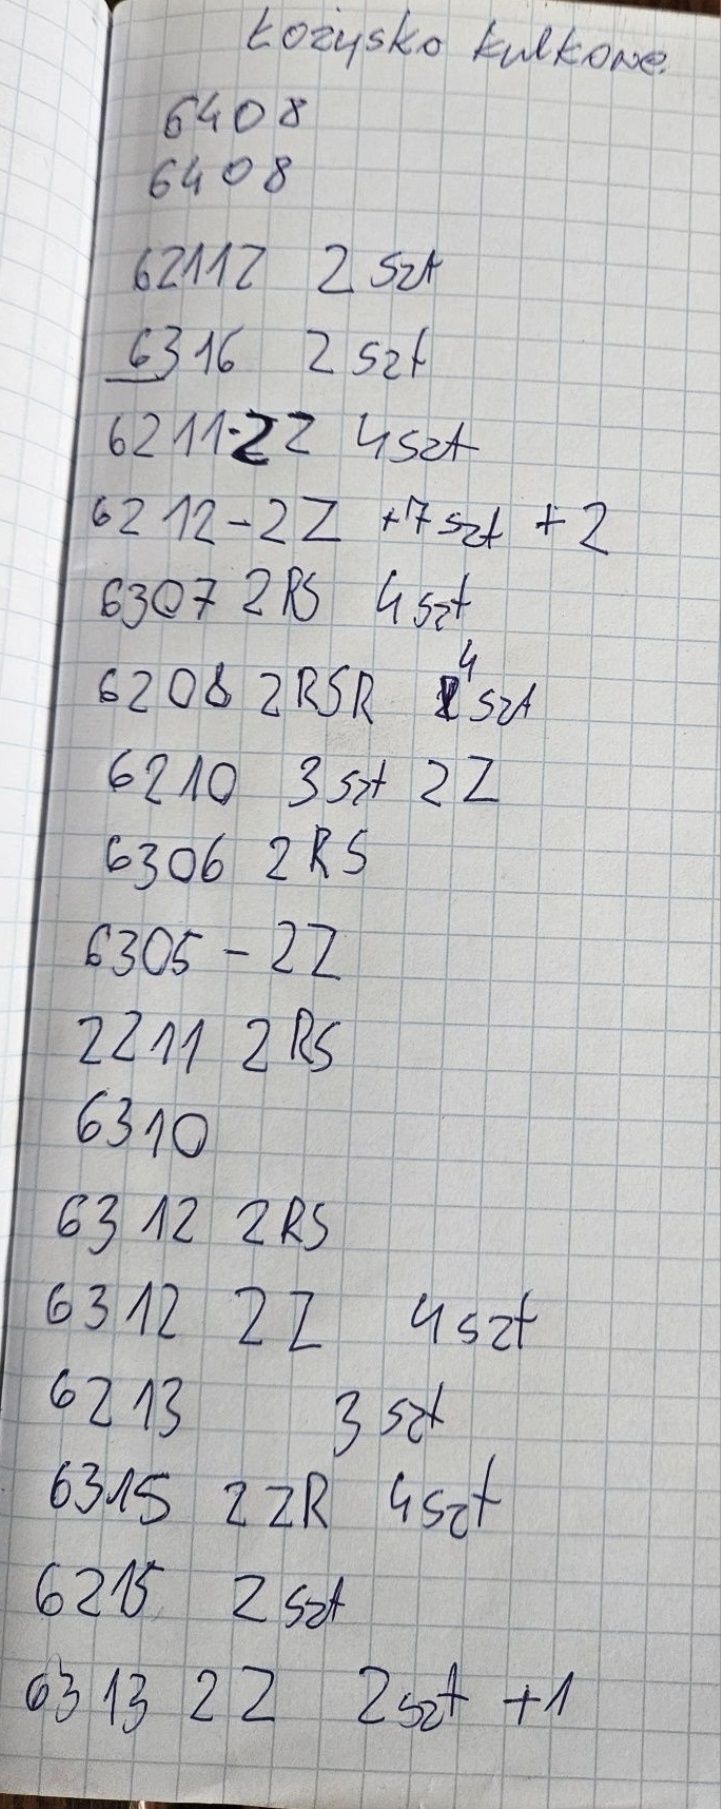 Łożysko kulkowe
6408
6408
6211Z 2 szt
6316 2 szt
6211-2Z 4 szt
6212-2Z +7 szt +2
6307 2RS 4 szt
6208 2RSR 4 szt
6210 3 szt 2Z
6306 2RS
6305 - 2Z
2211 2RS
6310
6312 2RS
6312 2Z 4 szt
6213 3 szt
6315 2ZR 4 szt
6215 2 szt
6313 2Z 2 szt +1